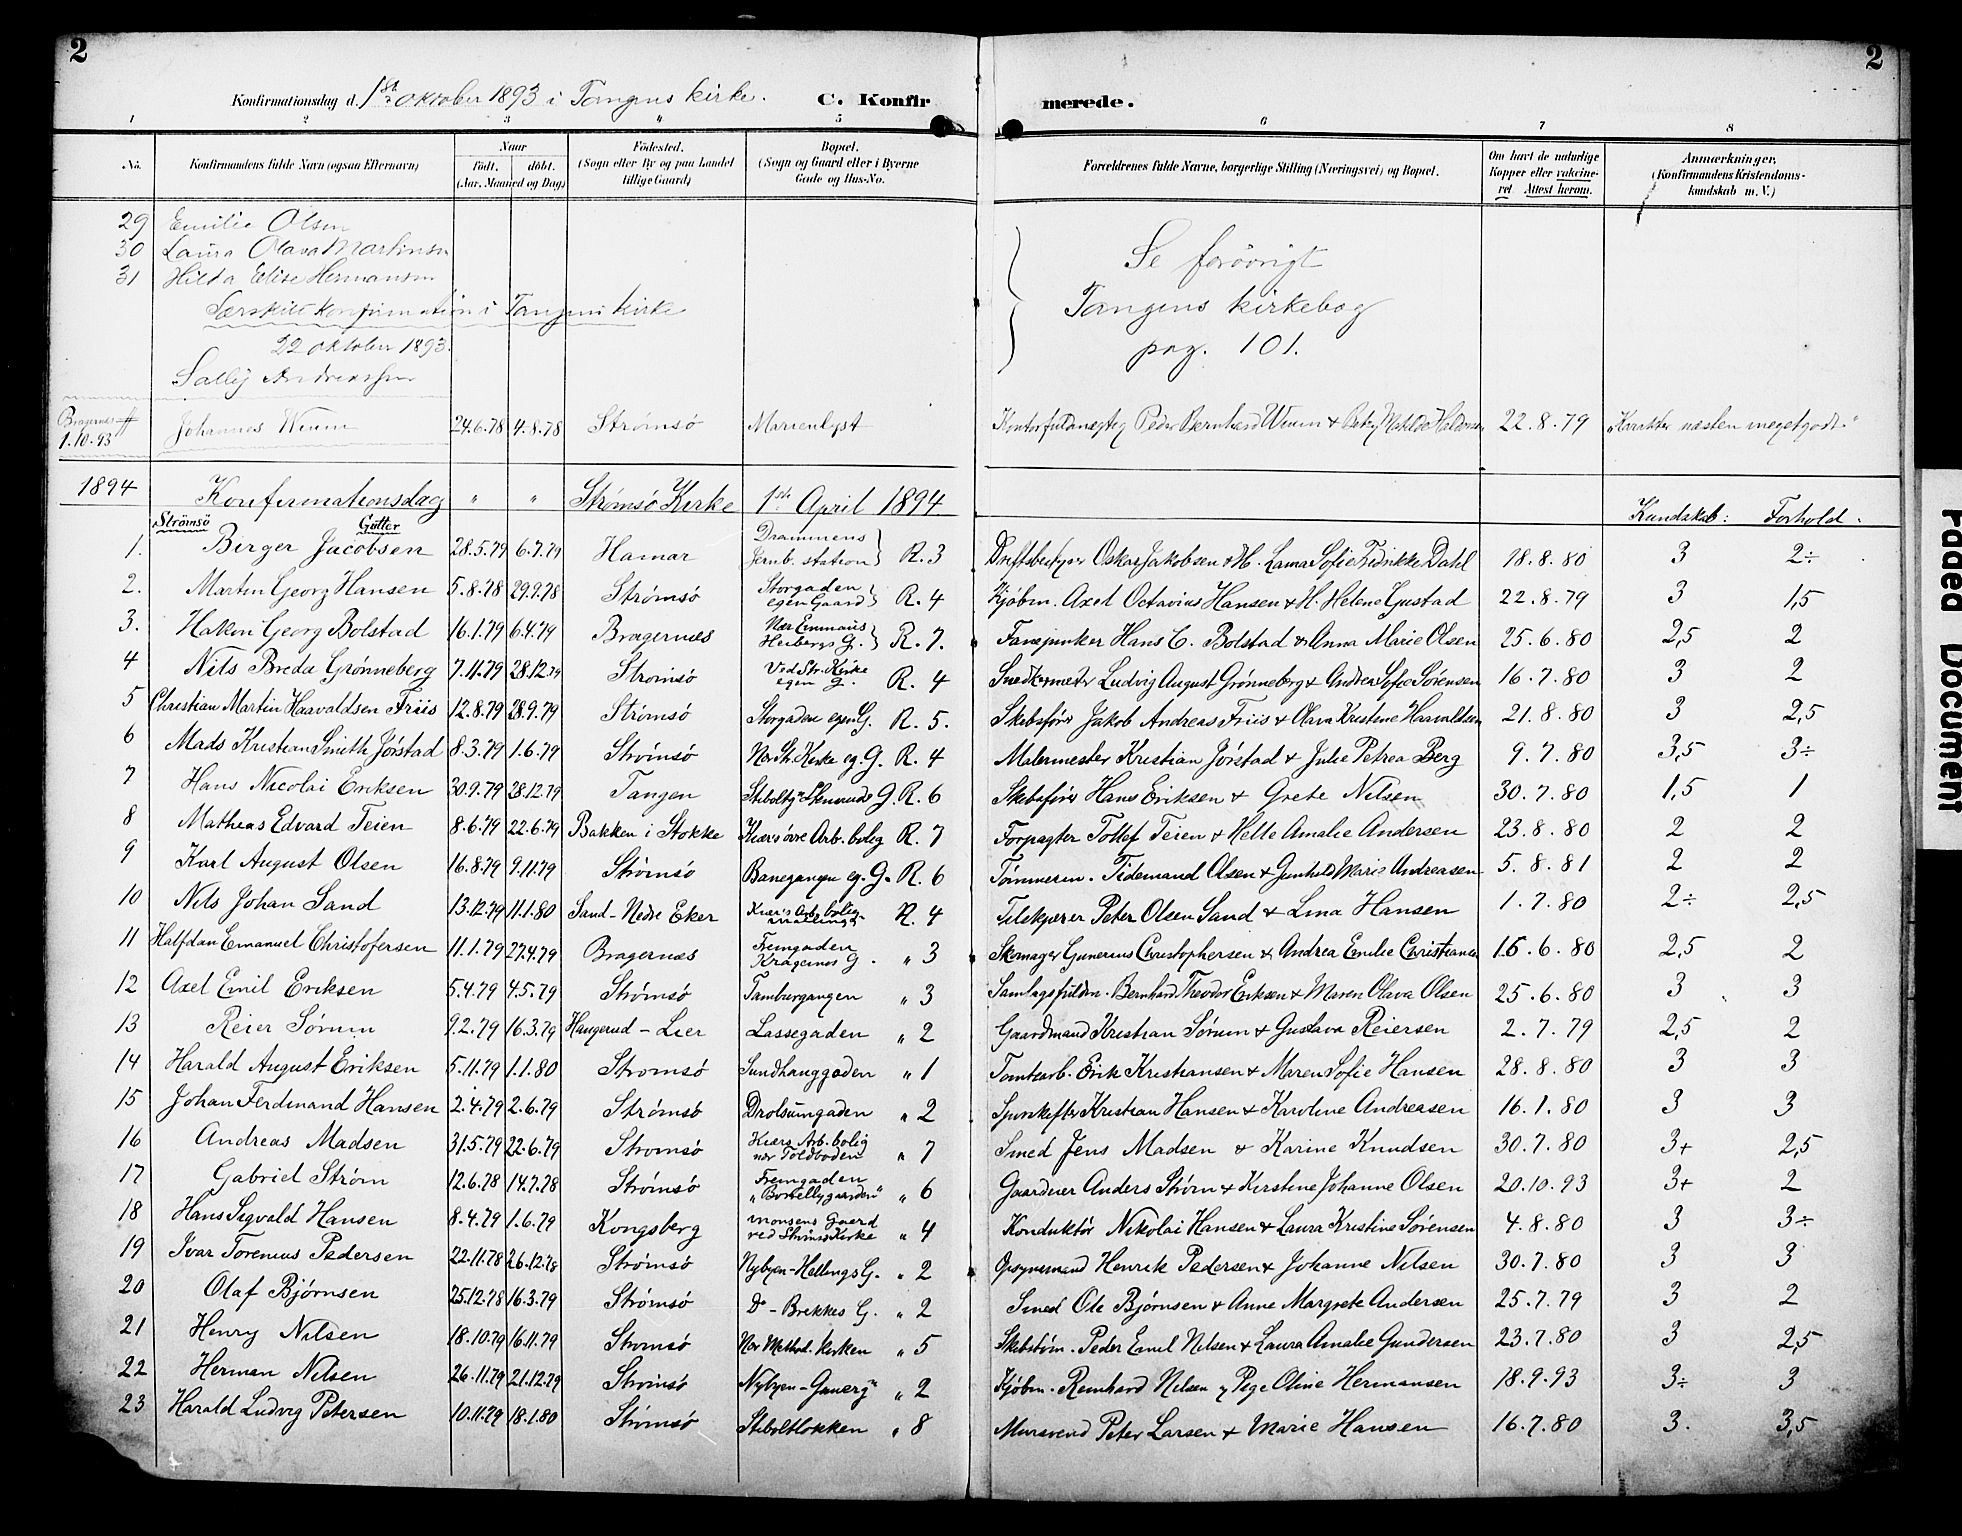 2
2
Konfirmationsdag d. 1st Oktober 1893 i Tangens kirke. C. Konfirmerede.
1 2 3 4 5 6 7 8
No. Konfirmandens fulde Navn (ogsaa Efternavn) Naar födt. döbt. (Aar, Maaned og Dag) Födested. (Sogn eller By og paa Landet tillige Gaard) Bopæl. (Sogn og Gaard eller i Byerne Gade og Hus-No. Forældrenes fulde Navne, borgerlige Stilling (Næringsvei) og Bopæl. Om havt de naturlige Kopper eller vakcineret Attest herom. Anmærkninger, (Konfirmandens Kristendomskundskab m. V.)
29 Emilie Olsen
30 Laura Olava Martinsen
31 Hilda Elise Hermansen
Særskilt konfirmation i Tangens kirke
22 oktober 1893.
Sally Andreassen
Se forövrigt
Tangens kirkebog
pag. 101.
Bragernes 1.10.93 Johannes Wium 24.6.78 4.8.78 Strømsö Marienlyst Kontorfuldmægtig Peder Bernhard Wium & Matilde 22.8.79 "Karakter næsten megetgodt."
1894 Konfirmationsdag " " Strømsö Kirke 1ste April 1894 Kundskab: Forhold.
Strömsö Gutter
1. Berger Jacobsen 28.5.79 6.7.79 Hamar Drammens Jernb. station R. 3 Driftsbestyrer Oskar Jakobsen & H. Laura Sofie Fredrikke Dahl 18.8.80 3 2÷
2. Martin Georg Hansen 5.8.78 29.9.78 Strømsö Storgaden egen Gaard R. 4 Kjøbm. Axel Octavius Hansen & H. Helene Gustad 22.8.79 3 1,5
3. Hakon Georg Bolstad 16.1.79 6.4.79 Bragernæs Nær Emmaus Heibergs G. R. 7. Fanejunker Hans C. Bolstad & Anna Marie Olsen 25.6.80 2,5 2
4 Nils Breda Grønneberg 7.11.79 28.12.79 Strømsö Ved Str. Kirke egen G. R. 4 Snedkermester Ludvig August Grønneberg & Andrea Sofie Sørensen 16.7.80 3 2
5 Christian Martin Haavaldsen Friis 12.8.79 28.9.79 Strømsö Storgaden egen G. R. 5. Skibsfører Jakob Andreas Friis & Olava Kristine Haavaldsen 21.8.80 3 2,5
6 Mads Kristian Smith Jørstad 8.3.79 1.6.79 Strømsö Nær St. Kirke eg. G. R. 4 Malermester Kristian Jørstad & Julie Petrea Berg 9.7.80 3,5 3÷
7 Hans Nicolai Eriksen 30.9.79 28.12.79 Tangen G. R. 6 Skibsfører Hans Eriksen & Grete Nilsen 30.7.80 1,5 1
8 Mathias Edvard Teien 8.6.79 22.6.79 Bakken i Stokke Kiærs øvre Arb. bolig R. 7 Forpagter Tollef Teien & Helle Amalie Andersen 23.8.80 2 2
9 Karl August Olsen 16.8.79 9.11.79 Strømsö Banegangen eg. G. R. 6 Tømmerm. Tidemand Olsen & Gunhild Marie Andreasen 5.8.81 2 2
10 Nils Johan Sand 13.12.79 11.1.80 Sand - Nedre Eker Kiærs Arb. bolig R. 4 Peter Olsen Sand & Lina Hansen 1.7.80 2÷ 2,5
11 Halfdan Emanuel Christofersen 11.1.79 27.4.79 Bragernæs Fremgaden Kragenes G. " 3 Skomager Gunerius Christophersen & Andrea Emilie Christiansen 16.6.80 2,5 2
12 Axel Emil Eriksen 5.4.79 4.5.79 Strømsö Tamburgangen " 3 Samlagsfuldm. Bernhard Theodor Eriksen & Maren Olava Olsen 25.6.80 3 3
13 Reier Sørum 9.2.79 16.3.79 Haugerud - Lier Lassegaden " 2 Gaardmand Kristian Sørum & Gustava Reiersen 2.7.79 2,5 2
14 Harald August Eriksen 5.11.79 1.1.80 Strømsö Sundhauggaden " 1 Tomtearb. Erik Kristiansen & Maren Sofie Hansen 28.8.80 3 3
15 Johan Ferdinand Hansen 2.4.79 2.6.79 Strømsö Drolsumgaden " 2 Sporskifter Kristian Hansen & Karoline Andreasen 16.1.80 3 3
16 Andreas Madsen 31.5.79 22.6.79 Strømsö Kiærs Arb. bolig nær Toldboden " 7 Smed Jens Madsen & Karine Knudsen 30.7.80 3+ 2,5
17 Gabriel Strøm 12.6.78 14.7.78 Strømsö Fremgaden "Bortellygaarden" " 6 Gaardner Anders Strøm & Kirstine Johanne Olsen 20.10.93 3+ 2
18 Hans Sigvald Hansen 8.4.79 1.6.79 Kongsberg Monsens Gaard ved Strømsö Kirke " 4 Konduktör Nikolai Hansen & Laura Kristine Sørensen 4.8.80 3 3÷
19 Ivar Torenius Pedersen 22.11.78 26.12.78 Strømsö Nybyen - Hellings G. " 2 Opsynsmand Henrik Pedersen & Johanne Nilsen 30.7.80 3 3
20 Olaf Bjørnsen 25.12.78 16.3.79 Strømsö Do - Brekkes G. " 2 Smed Ole Bjørnsen & Anne Margrete Andersen 25.7.79 3 2
21 Henry Nilsen 18.10.79 16.11.79 Strømsö Nær Method. Kirken " 5 Skibstøm. Peder Emil Nilsen & Laura Amalie Gundersen 23.7.80 3 2,5
22 Herman Nilsen 26.11.79 21.12.79 Strømsö Nybyen - " 2 Kjøbm. Reinhard Nilsen & Oline Hermansen 18.9.93 3÷ 3
23 Harald Ludvig Petersen 10.11.79 18.1.80 Strømsö Stiboltløkken " 8 Mursvend Peter Larsen & Marie Hansen 16.7.80 3. 3,5
Faded Document